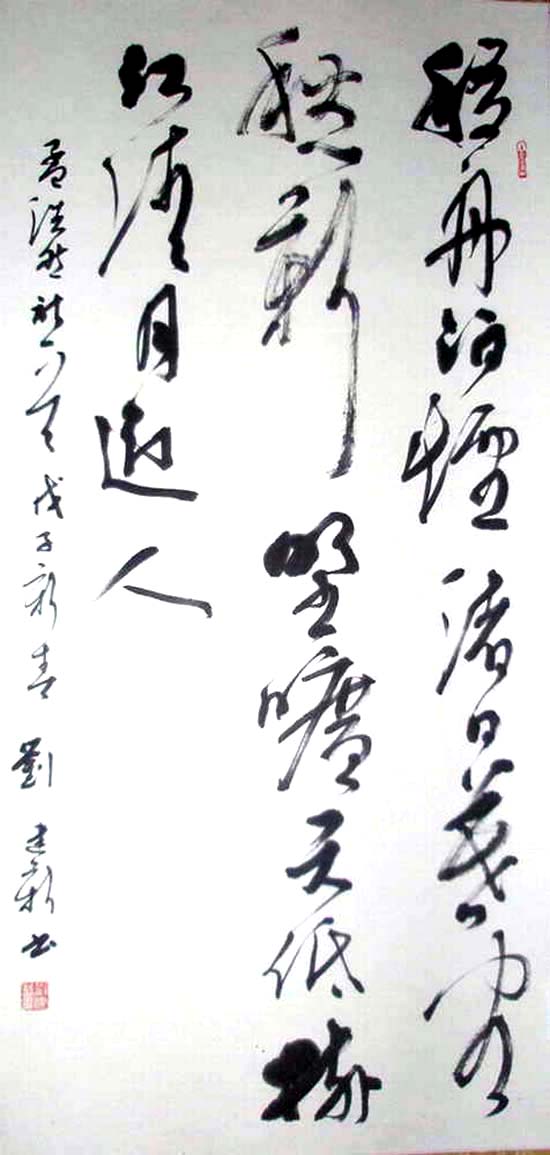 移舟泊煙渚日暮客
愁新野曠天低樹
江清月近人
孟浩然詩一首戊子新春劉建新書